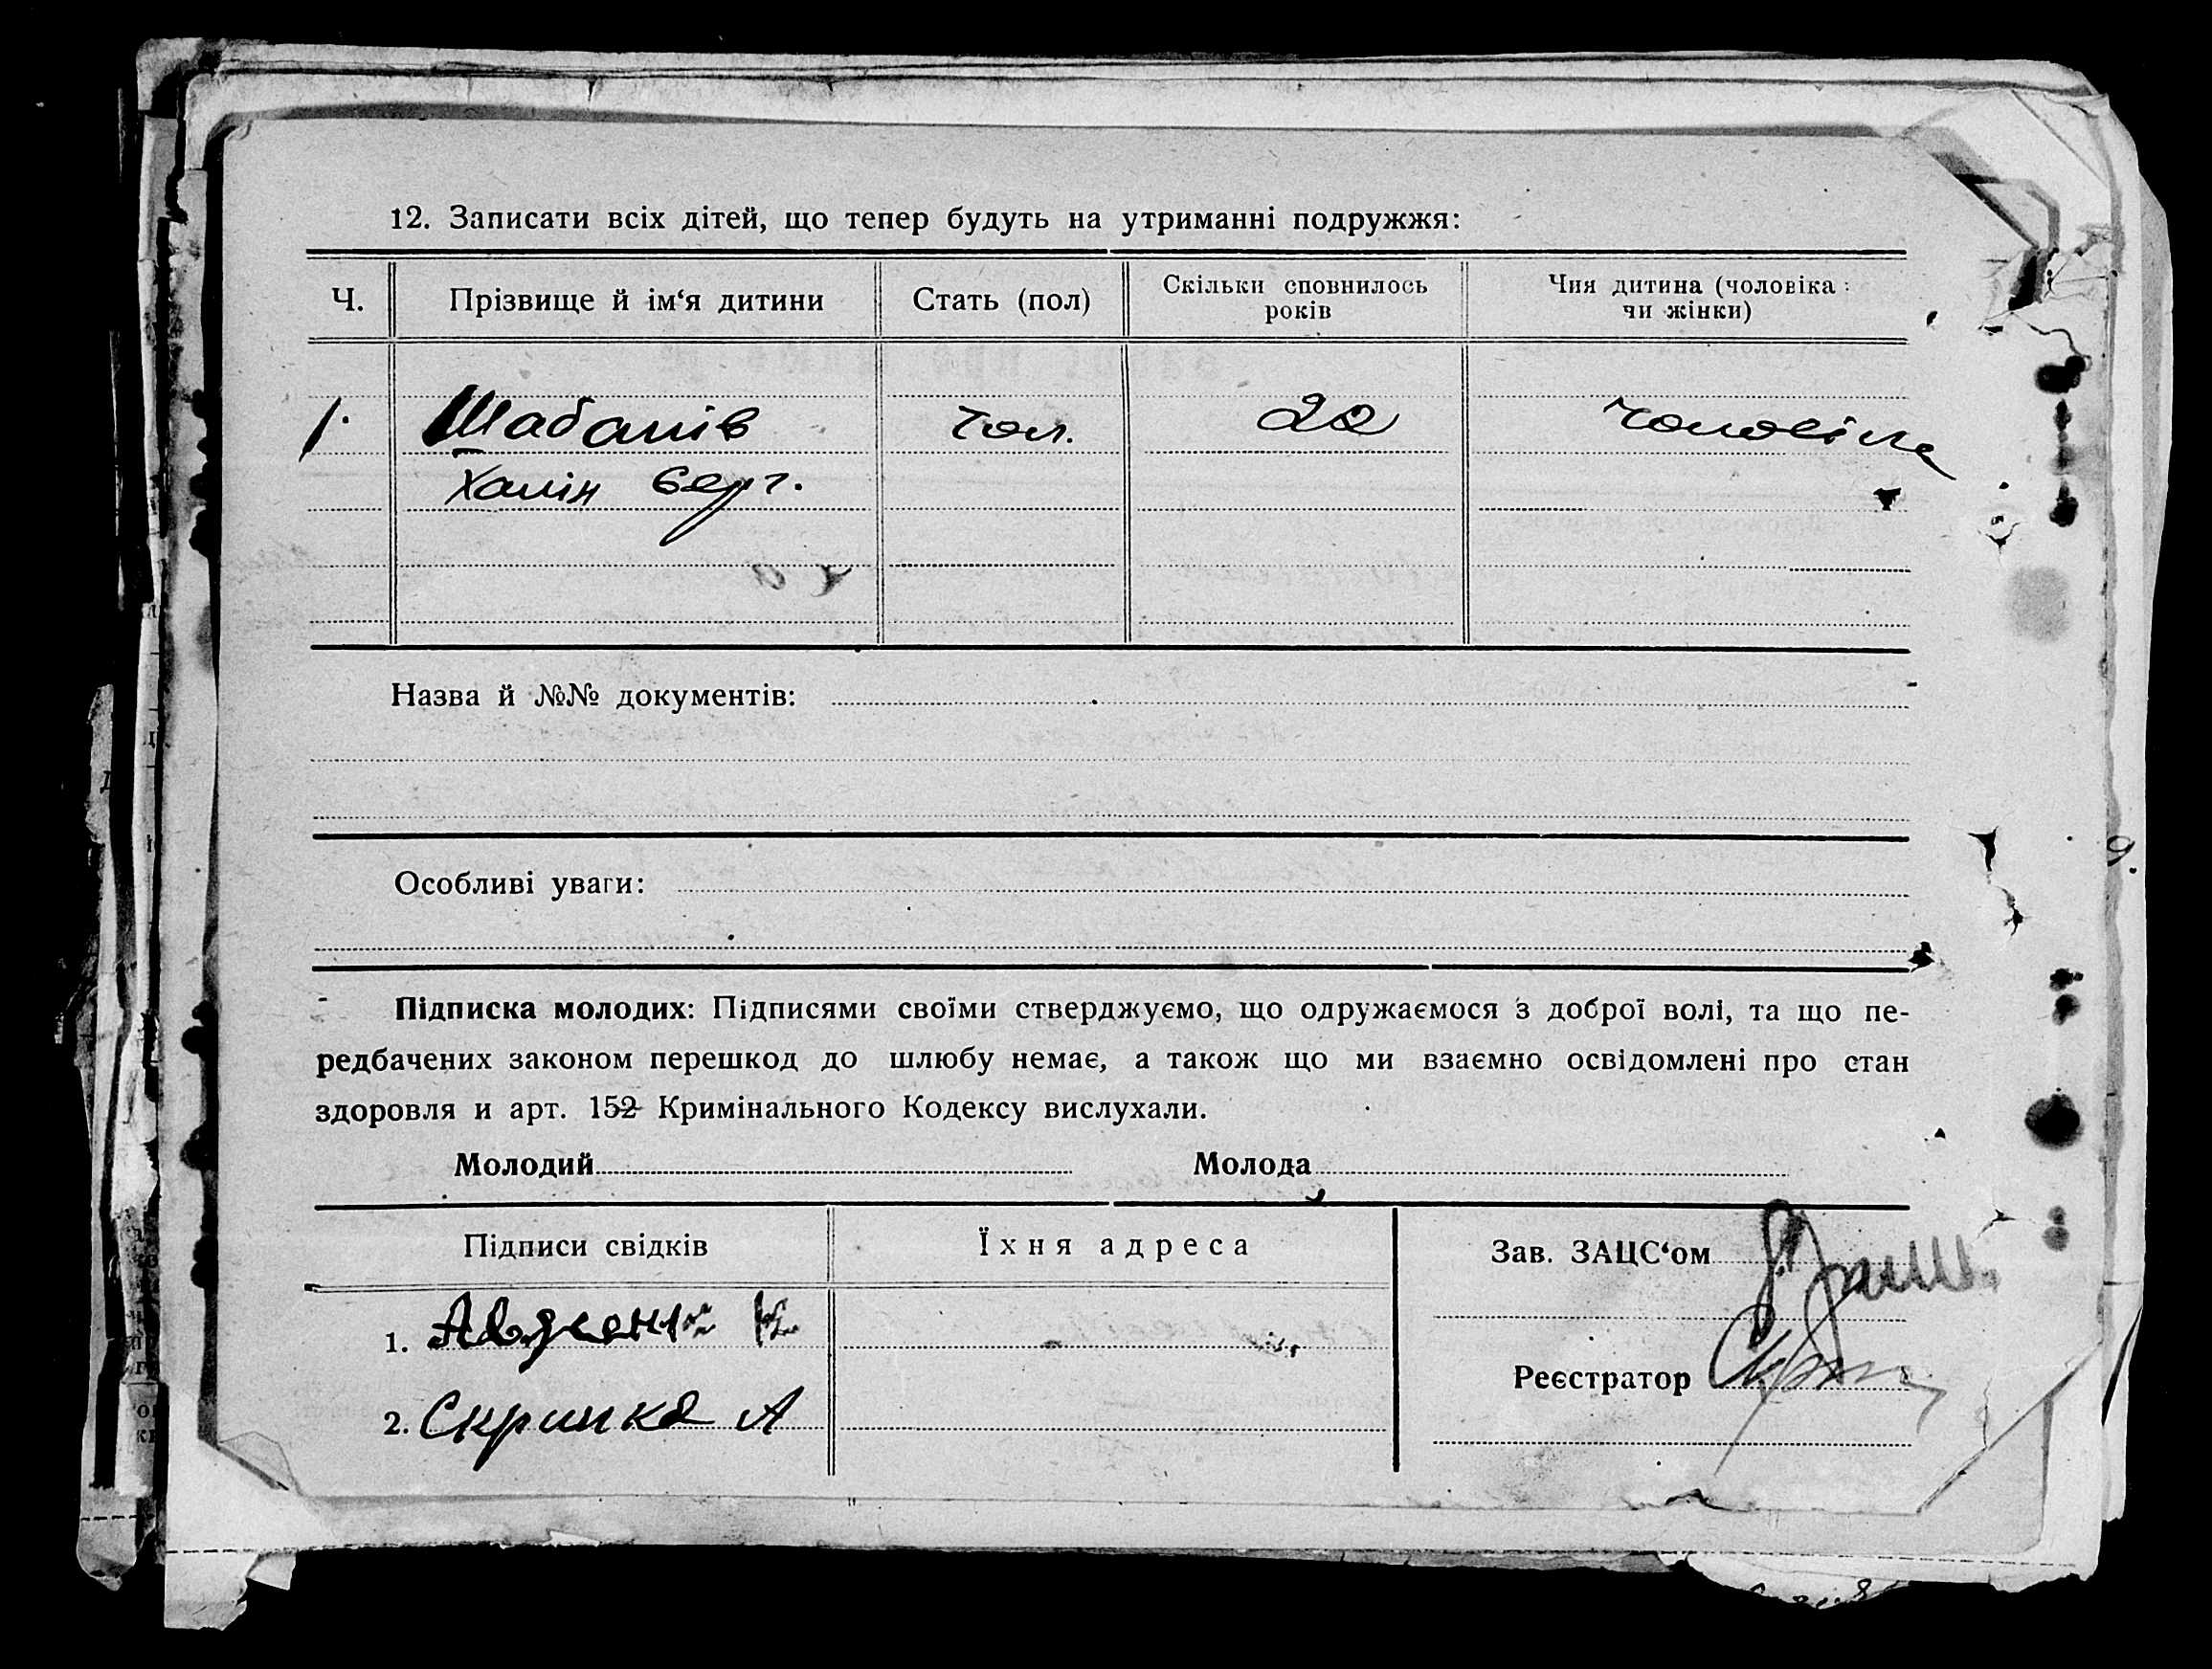 12. Записати всіх дітей, що тепер будуть на утриманні подружжя:
Ч. Прізвище й ім‘я дитини Стать (пол) Скільки сповнилось років Чия дитина (чоловіка чи жінки)
1. Шабанів Чол. 22 Чоловіка
Халін Серг.
Назва й №№ документів:
Особливі уваги:
Підписка молодих: Підписями своїми стверджуємо, що одружаємося з доброї волі, та що пе-
редбачених законом перешкод до шлюбу немає, а також що ми взаємно освідомлені про стан
здоровля и арт. 152 Кримінального Кодексу вислухали.
Молодий Молода
Підписи свідків Їхня адреса Зав. ЗАЦС‘ом
1.
Реєстратор
2. Скрипка А